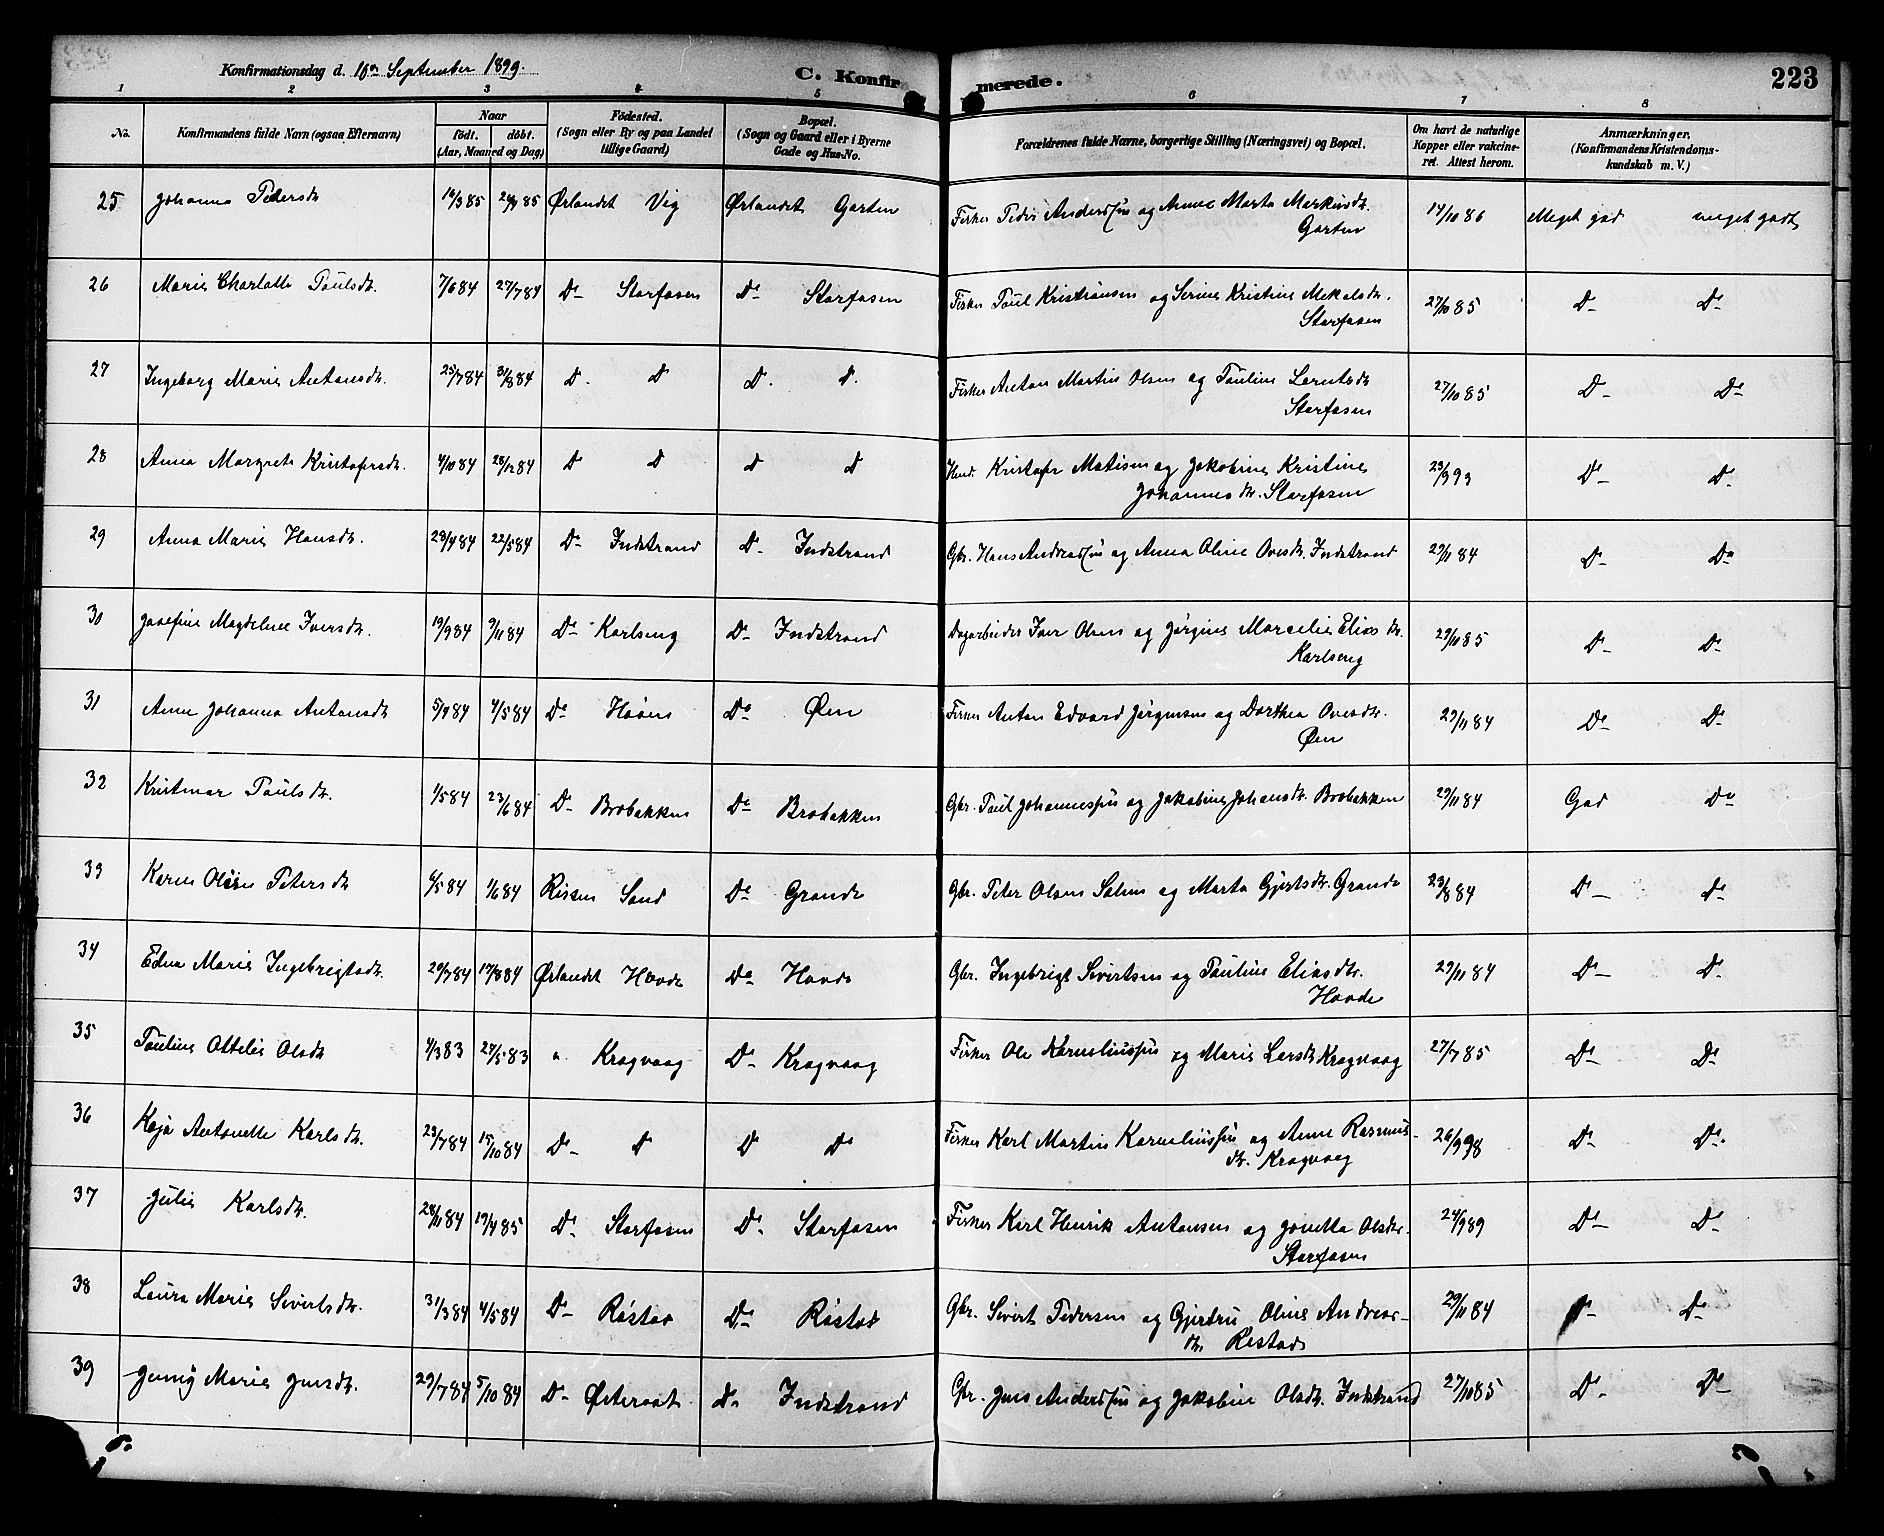 Konfirmationsdag d. 10de September 1899. C. Konfirmerede. 223
1 2 3 4 5 6 7 8
No. Konfirmandens fulde Navn (ogsaa Efternavn) Naar födt. döbt. (Aar, Maaned og Dag) Födested. (Sogn eller By og paa Landet tillige Gaard) Bopæl. (Sogn og Gaard eller i Byerne Gade og Hus-No. Forældrenes fulde Navne, borgerlige Stilling (Næringsvei) og Bopæl. Om havt de naturlige Kopper eller vakcineret. Attest herom. Anmærkninger. (Konfirmandens Kristendomskundskab m. V.)
25 Johanna Pedersdtr 85 85 Ørlandet Vig Ørlandet Garten Fisker Peder Anders͡sen og Anne Marta Markusdtr. 14/10 86 Meget god meget godt
Garten
26 Marie Charlotte Paulsdtr. 7/6 84 27/7 84 Do Storfosen Do Storfosen Fisker Paul Kristiansen og Serine Kristine Mekalsdtr. 27/10 85 D Do
Storfosen
27 Ingeborg Marie Antonsdtr. 25/7 84 31/8 84 D. D D. D. Fisker Anton Martin Olsen og Pauline Lorntsdtr 27/10 85 D Do
Storfosen
28 Anna Margrete Kristofersdtr. 4/10 84 28/12 84 D D D D Kristofer Matisen og Jakobine Kristine 23/9 93 Do D
Johannesdtr. Storfosen
29 Anna Marie Hansdtr. 23/4 84 22/5 84 Do Indstrand D. Indstrand Gbr. Hans Andreassen og Anna Oline Ovesdtr. Indstrand 29/11 84 D Do
30 Josefine Magdelene Iversdtr. 19/9 84 9/11 84 Do Karlseng Do Indstrand Dagarbeider Iver Olsen og Jørgine Marcelie Eliasdtr. 29/10 85 D D
Karlseng
31 Anne Johanna Antonsdtr 84 4/5 84 Do Hoøen Do Øen Fisker Anton Edvard Jørgensen og Dorthea Ovesdtr. 29/11 84 Do Do
Øen
32 Kristmar Paulsdtr. 1/5 84 23/6 84 D Brobakken Do Brobakken Gbr. Paul Johannessen og Jakobine Johansdtr. Brobakken 29/11 84 God Do
33 Karen Olsine Petersdtr 6/5 84 1/6 84 Rissen Sand Do Grande Gbr. Peter Olsen Solem og Marta Gjertsdtr. Grande 23/8 84 D D
34 Edna Marie Ingebrigtsdtr. 29/7 84 17/8 84 Ørlandet Hovde Do Hovde Gbr. Ingebrigt Sivertsen og Pauline Eliasdtr. 29/11 84 D D
Hovde
35 Pauline Ottelie Olsdtr 4/3 83 27/5 83 " Kragvaag Do Kragvaag Fisker Ole Korneliussen og Marie Larsdtr Kragvaag 27/7 85 D Do
36 Kaja Antonette Karlsdtr. 23/7 84 15/10 84 D D D D Fisker Karl Martin Korneliussen og Anne Rasmus- 26/9 98 D D
dtr. Kragvaag
37 Julie Karlsdtr. 28/11 84 19/4 85 D Storfosen D Storfosen Fisker Karl Henrik Antonsen og Jonetta Olsdtr. 24/9 89 D D
Storfosen
38 Laura Marie Sivertsdtr. 31/3 84 4/5 84 D Røstad Do Røstad Gbr. Sivert Pedersen og Gjertru Oline Andreas- 29/11 84 D D
dtr. Røstad
39 Jenny Marie Jensdtr. 29/7 84 5/10 84 D Østeraat D Indstrand Gbr. Jens Anderssen og Jakobine Olsdtr. Indstrand 27/10 85 D D